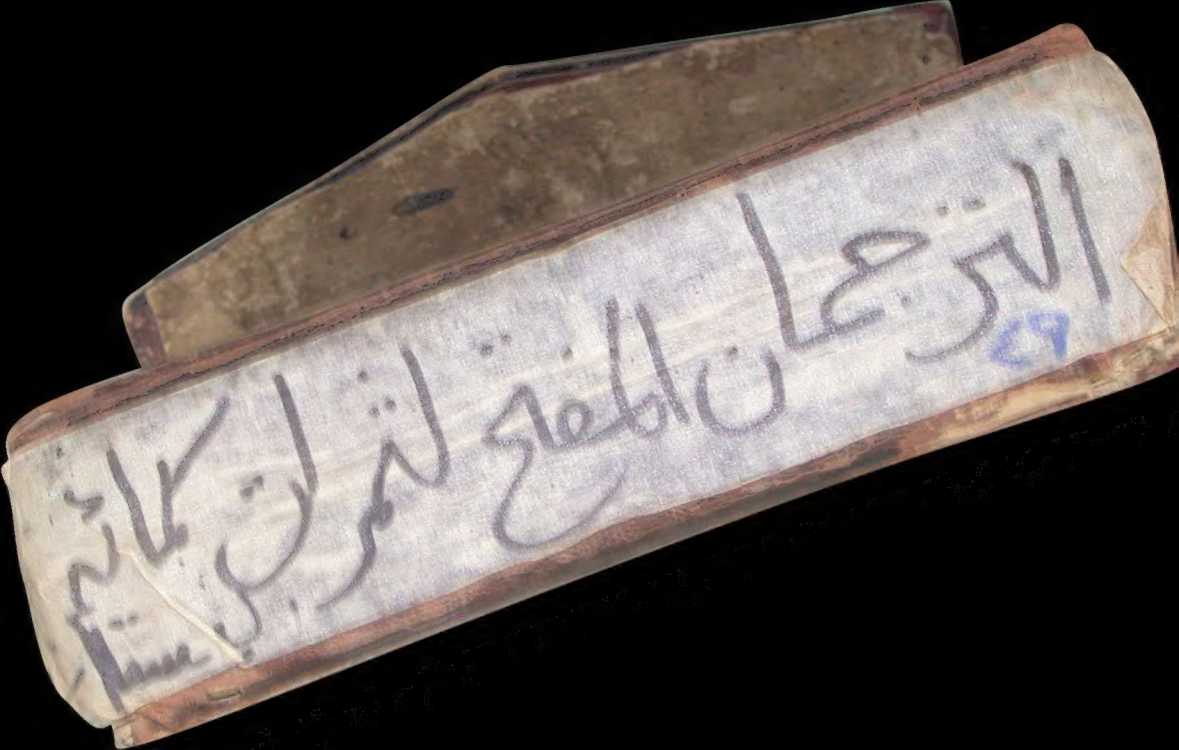 الترجمان المفتح لثمرات كمائم
بستان
٤٩